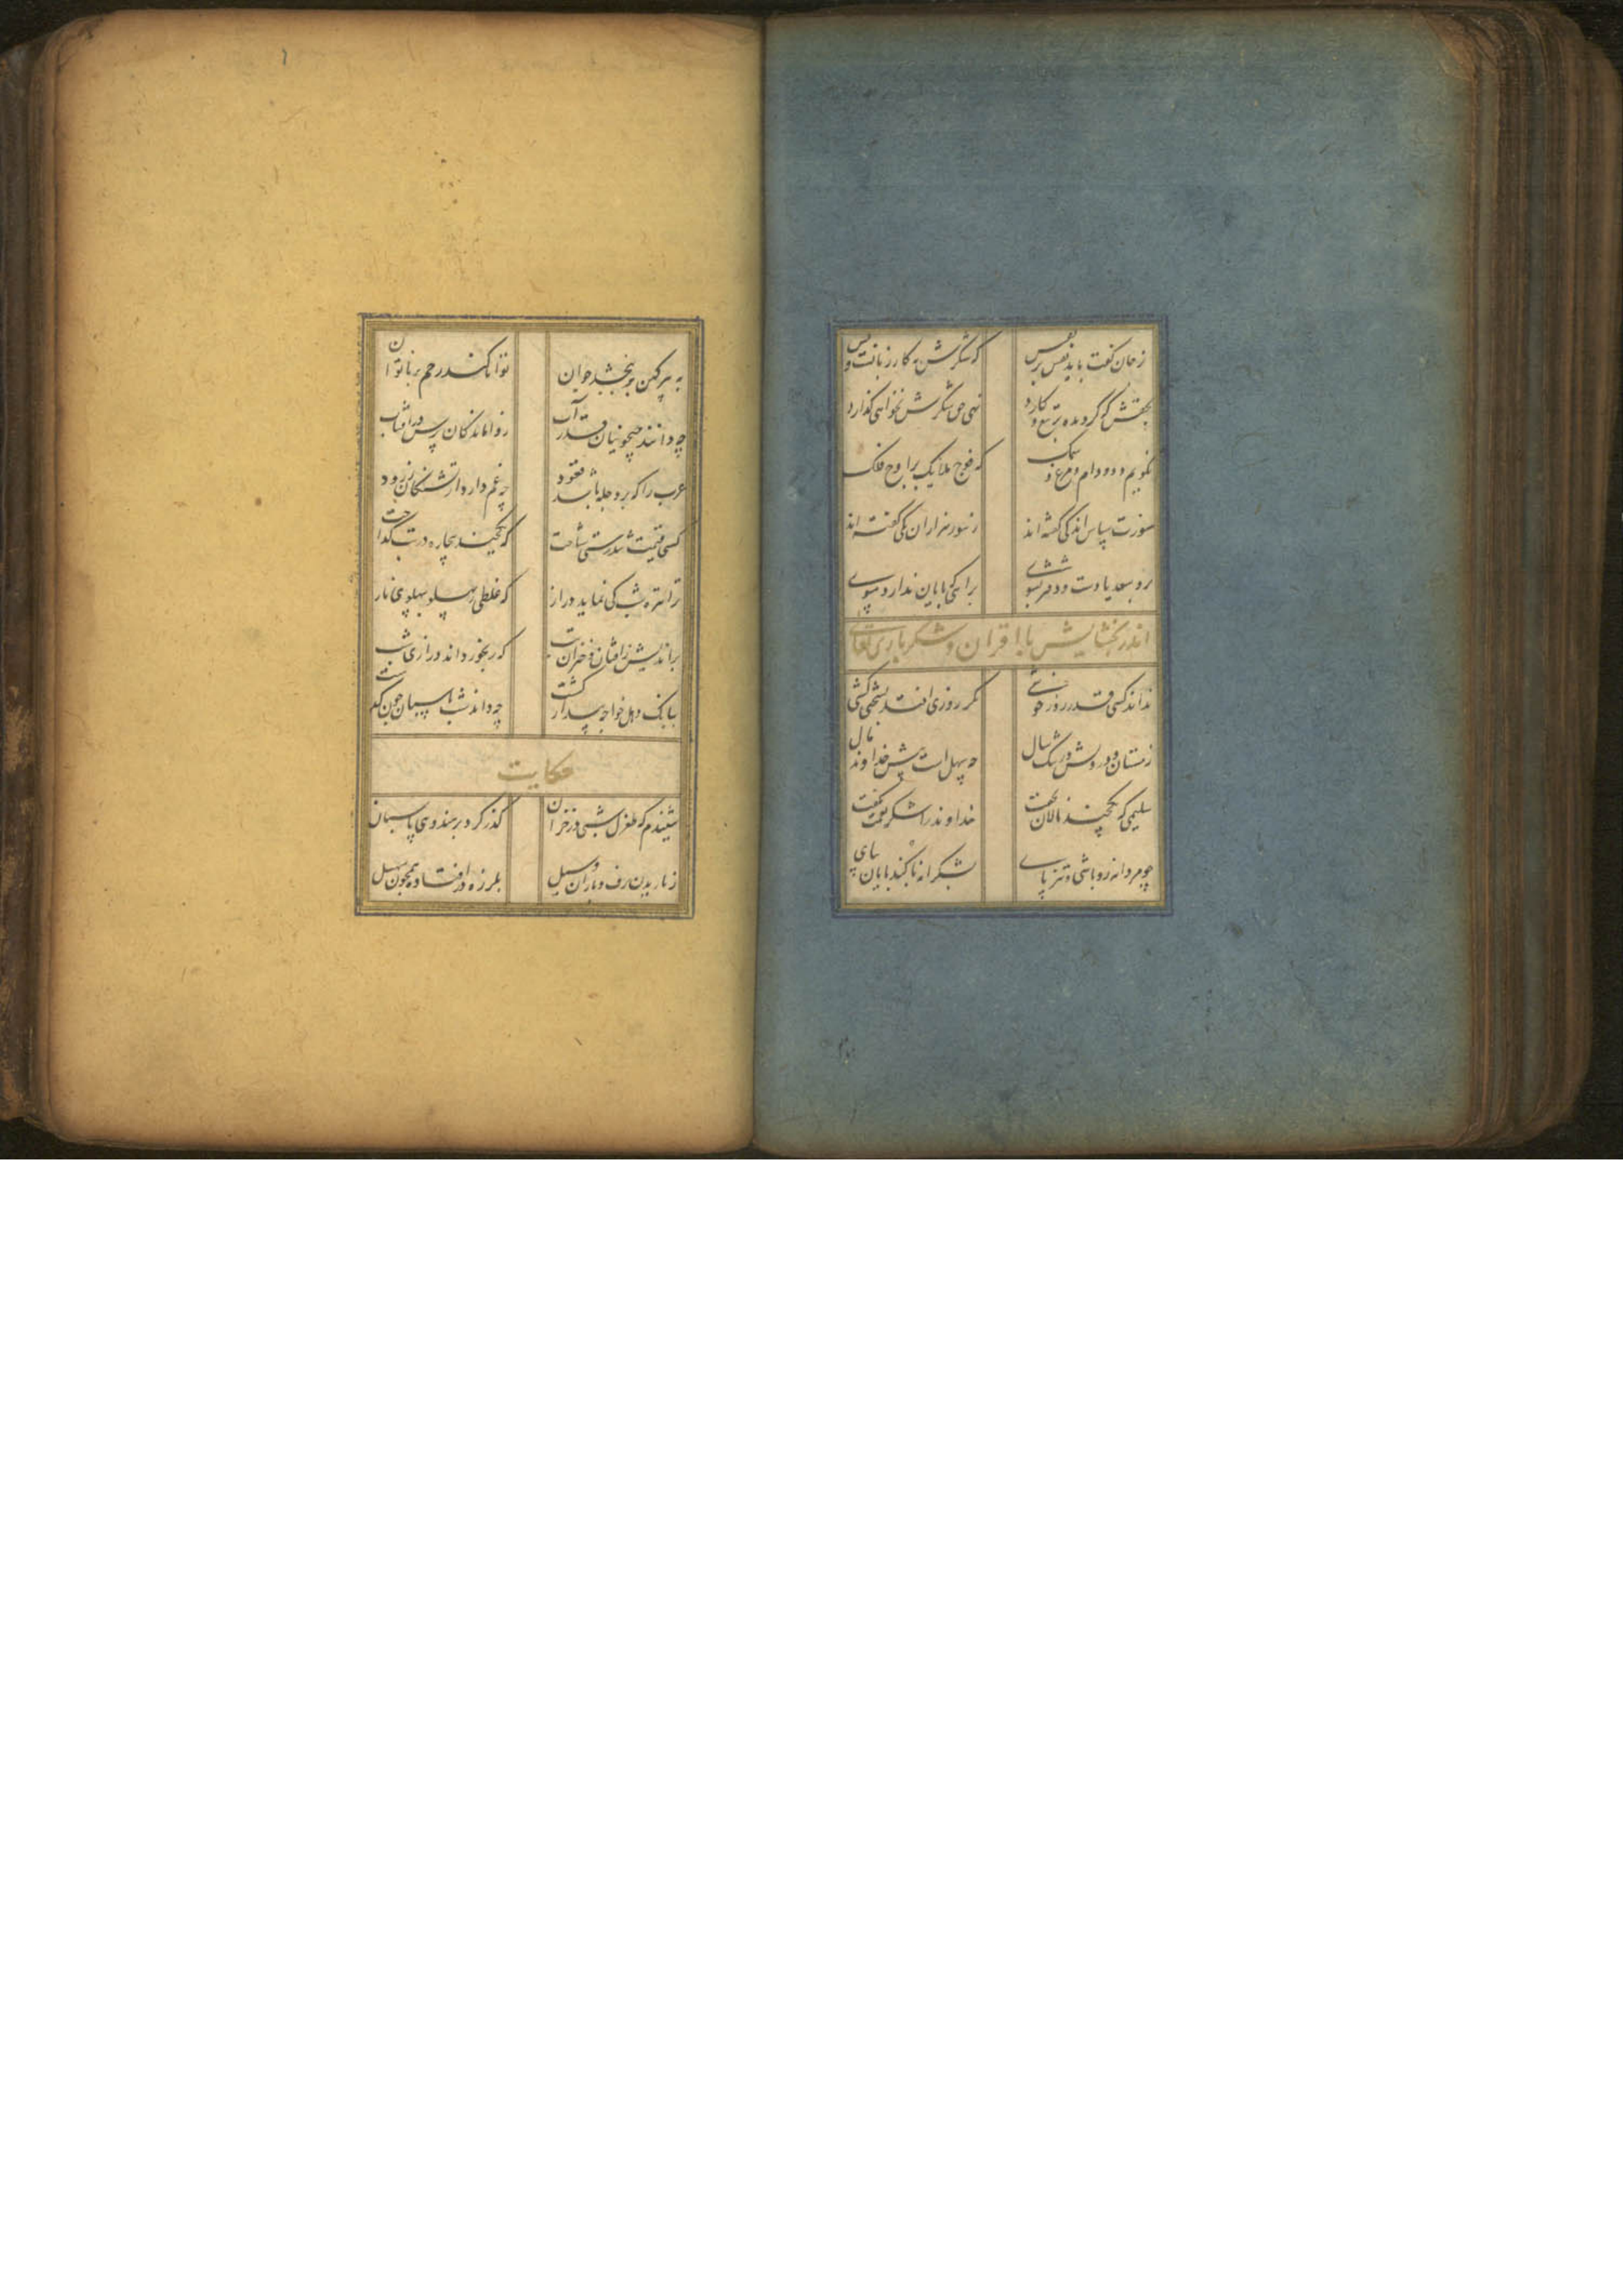 ز جان گفت باید نفس بر نفس که شکرش نه کار زبانست و بس
نهی حق شکرش نخواهی گذارد
نگویم دد و دام و مرغ و سمک که فوج ملایک بر اوج فلک
هنوزت سپاس اندکی گفته اند ز بیور هزاران یکی گفته اند
برو سعدیا دست و دفتر بشوی براهی که پایان ندارد مپوی
اندر بخشایش با اقران و شکر باری تعالی
نداند کسی قدر روز خوشی مگر روزی افتد بسختی کشی
زمستان درویش در تنگ سال چه سهل است پیش خداوند مال
سلیمی که یکچند نالان نخفت خداوند را شکر صحت نگفت
چو مردانه رو باشی و تیز پای بشکرانه با کند پایان بپای
به پیر کهن بر ببخشد جوان توانا کند رحم بر ناتوان
چه دانند جیحونیان قدر آب ز واماندگان پرس در آفتاب
عرب را که بر دجله باشد قعود چه غم دارد از تشنگان زرود
کسی قیمت تندرستی شناخت که یکچند بیچاره در تب گداخت
ترا تیره شب کی نماید دراز که غلطی ز پهلو بپهلوی ناز
براندیش ز افتان و خیزان تب که رنجور داند درازی شب
ببانگ دهل خواجه بیدار گشت چه داند شب پاسبان چون گذشت
حکایت
شنیدم که طغرل شبی در خزان گذر کرد بر هندوی پاسبان
ز باریدن برف و باران و سیل بلرزه در افتاده همچون سهیل